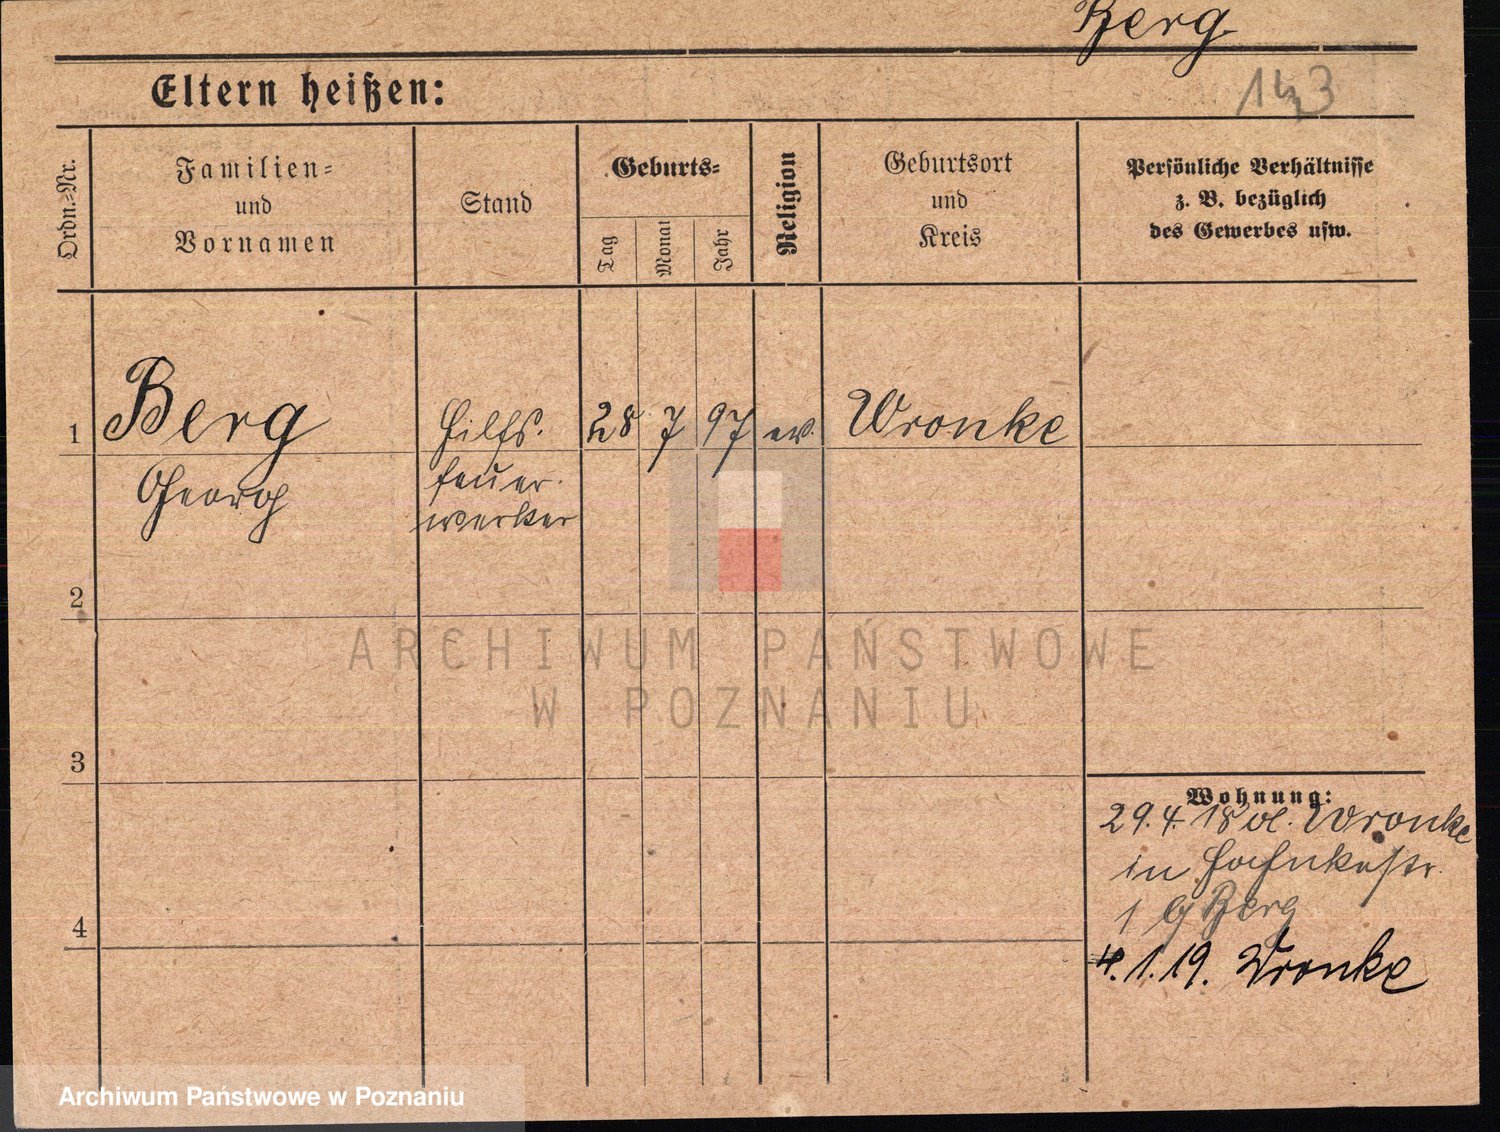 Berg
Eltern heißen:
143
Ordn.-Nr.
Familien-
und
Vornamen
Stand
Geburts-
Tag
Monat
Jahr
Religion
Geburtsort
und
Kreis
Persönliche Verhältnisse
z. B. bezüglich
des Gewerbes usw.
1 Berg Hilfs- 28 7 97 ev. Wronke
Georg feuer-
werker
2
ARCHIWUM PAŃSTWOWE
W POZNANIU
3
Wohnung:
29.4.18 Wronke
in
1 Berg
4
4.1.19. Wronke
Archiwum Państwowe w Poznaniu